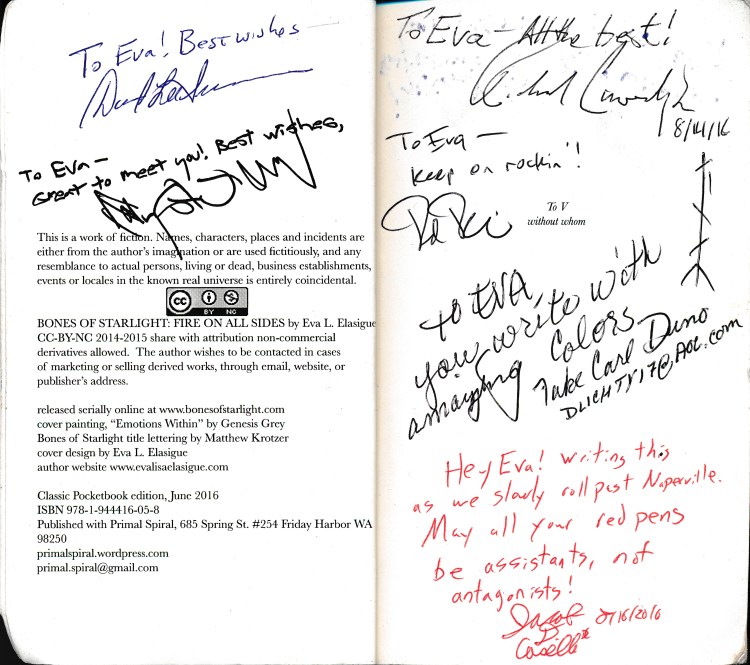 To Eva! Best wishes -
To Eva -
Great to meet you! Best wishes,
This is a work of fiction. Names, characters, places and incidents are
either from the author's imagination or are used fictitiously, and any
resemblance to actual persons, living or dead, business establishments,
events or locales in the known real universe is entirely coincidental.
cc
BY NC
BONES OF STARLIGHT: FIRE ON ALL SIDES by Eva L. Elasigue
CC-BY-NC 2014-2015 share with attribution non-commercial
derivatives allowed. The author wishes to be contacted in cases
of marketing or selling derived works, through email, website, or
publisher's address.
released serially online at www.bonesofstarlight.com
cover painting, "Emotions Within" by Genesis Grey
Bones of Starlight title lettering by Matthew Krotzer
cover design by Eva L. Elasigue
author website www.evalisaelasigue.com
Classic Pocketbook edition, June 2016
ISBN 978-1-944416-05-8
Published with Primal Spiral, 685 Spring St. #254 Friday Harbor WA
98250
primalspiral.wordpress.com
primal.spiral@gmail.com
To Eva - All the best!
8/14/16
To Eva -
keep on rockin'!
To V
without whom
to EVA,
you write with
amazing Colors
Take Care
Hey Eva! Writing this
as we slowly roll past Naperville.
May all your red pens
be assistants, not
antagonists!
Jacob